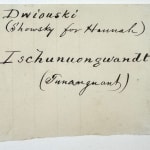 Dwiouski
(Showsky for Hannah)
Ischunuongwandt
(Tunanguant)